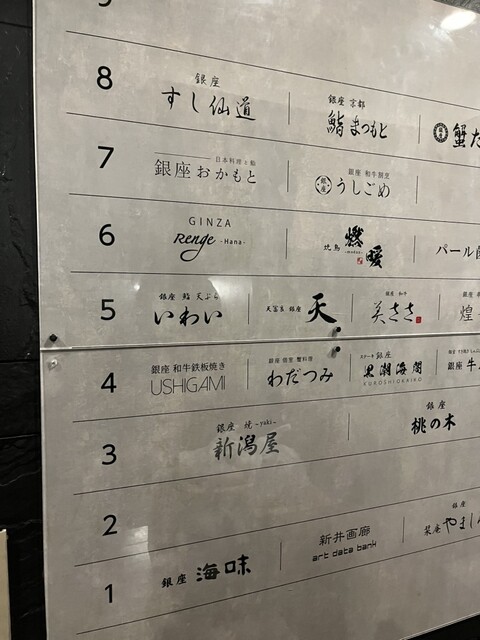 8
銀座
すし仙道
銀座 京都
鮨まつもと
蟹
7
日本料理と鮨
銀座おかもと
銀座 和牛割烹
銀座
うしごめ
6
GINZA
Renge -Hana-
焼鳥
燃暖
パール
5
銀座 鮨 天ぷら
いわい
天冨良 銀座
天
銀座 和牛
美ささ
煌
4
銀座 和牛鉄板焼き
USHIGAMI
銀座 個室 蟹料理
わだつみ
ステーキ 銀座
黒潮海閤
KUROSHIOKAIKO
銀座 牛
3
銀座 焼 -yaki-
新潟屋
銀座
桃の木
2
1
銀座 海味
新井画廊
art data bank
銀座
やまし